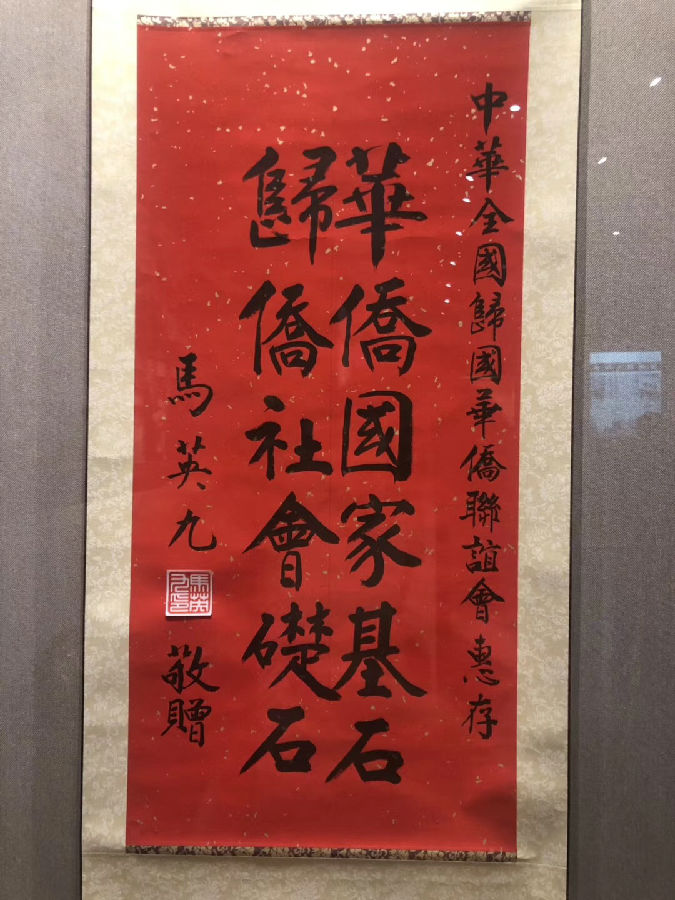 中華全國歸國華僑聯誼會惠存
華僑國家基石
歸僑社會礎石
馬英九
馬英九印
敬贈